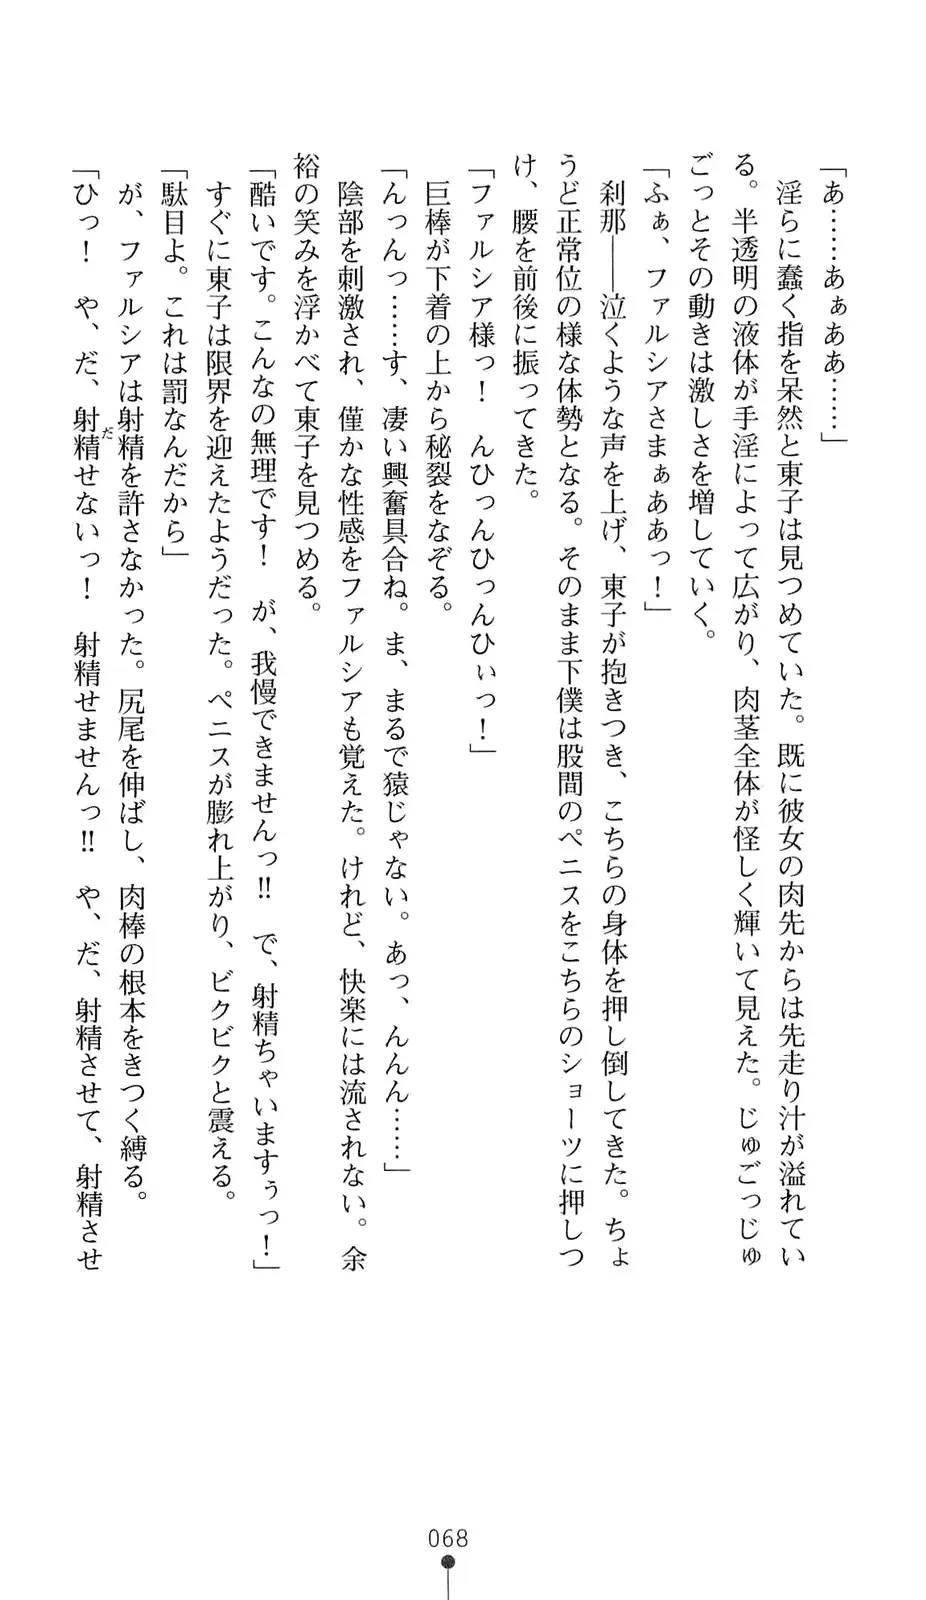 「あ……あぁああ……」
　淫らに蠢く指を呆然と東子は見つめていた。既に彼女の肉先からは先走り汁が溢れてい
る。半透明の液体が手淫によって広がり、肉茎全体が怪しく輝いて見えた。じゅごっじゅ
ごっとその動きは激しさを増していく。
「ふぁ、ファルシアさまぁああっ！」
　刹那――泣くような声を上げ、東子が抱きつき、こちらの身体を押し倒してきた。ちょ
うど正常位の様な体勢となる。そのまま下僕は股間のペニスをこちらのショーツに押しつ
け、腰を前後に振ってきた。
「ファルシア様っ！　んひっんひっんひぃっ！」
　巨棒が下着の上から秘裂をなぞる。
「んっんっ……す、凄い興奮具合ね。ま、まるで猿じゃない。あっ、んんん……」
　陰部を刺激され、僅かな性感をファルシアも覚えた。けれど、快楽には流されない。余
裕の笑みを浮かべて東子を見つめる。
「酷いです。こんなの無理です！　が、我慢できませんっ!!　で、射精ちゃいますぅっ！」
　すぐに東子は限界を迎えたようだった。ペニスが膨れ上がり、ビクビクと震える。
「駄目よ。これは罰なんだから」
　が、ファルシアは射精を許さなかった。尻尾を伸ばし、肉棒の根本をきつく縛る。
「ひっ！　や、だ、射精せないっ！　射精せませんっ!!　や、だ、射精させて、射精させ
だ
068